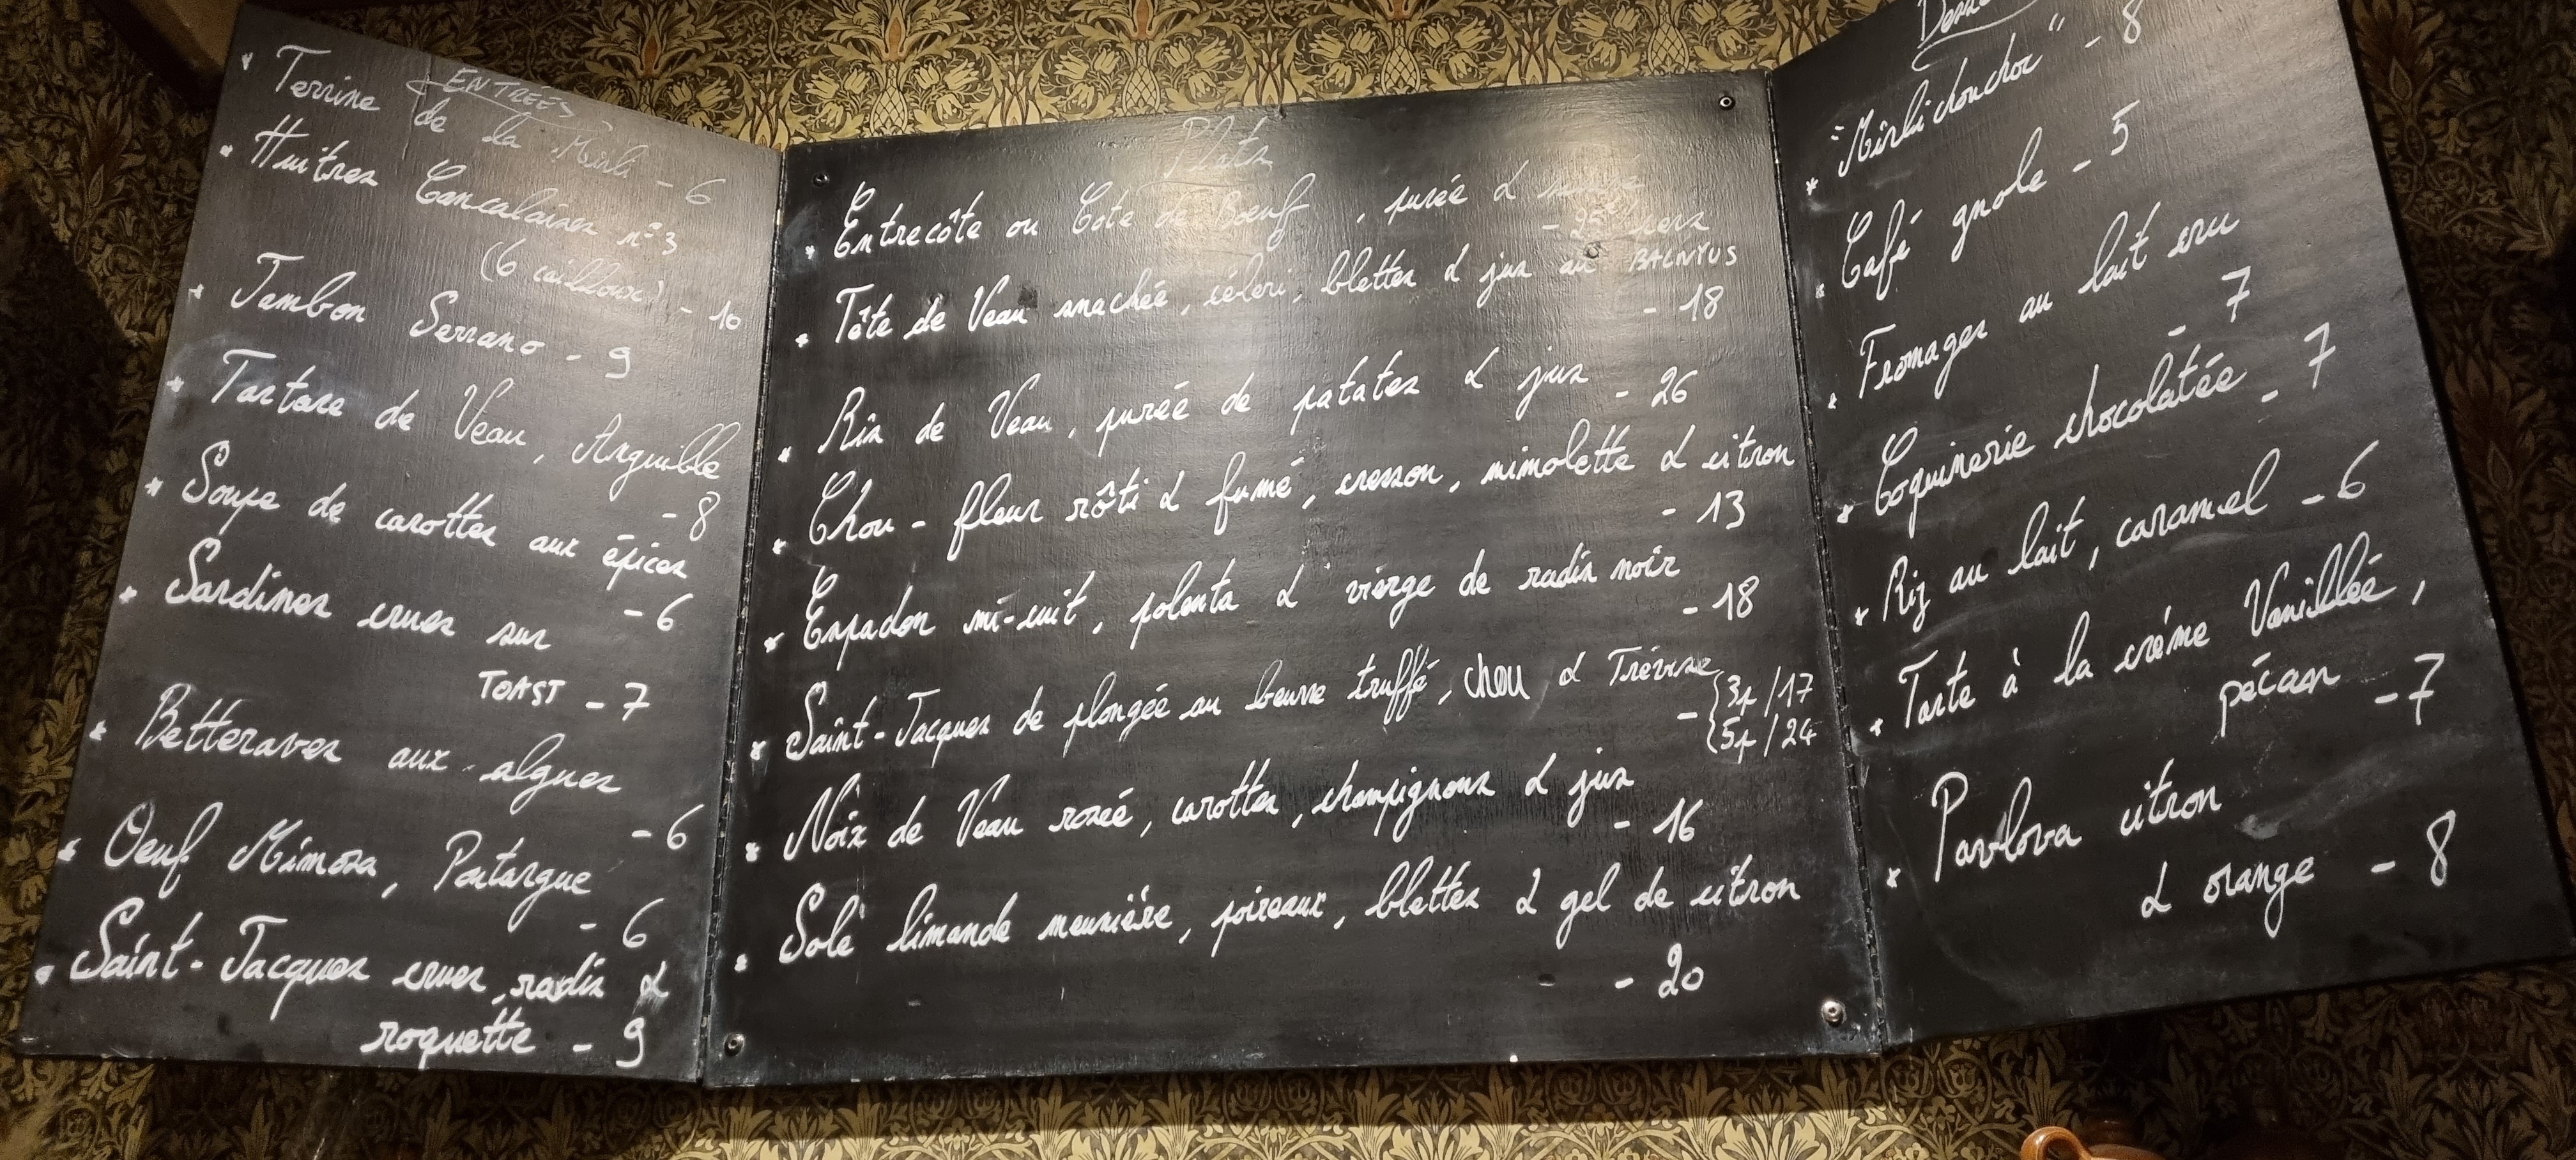 ENTRÉES
* Terrine de la Mirli - 6
* Huitres Cancalaises n°3
(6 cailloux) - 10
* Jambon Serrano - 9
* Tartare de Veau, Anguille
- 8
* Soupe de carottes aux épices
- 6
* Sardines crues sur
TOAST - 7
* Betteraves aux algues
- 6
* Oeuf Mimosa, Poutargue
- 6
* Saint-Jacques crues, radis &
roquette - 9
Plats
* Entrecôte ou Cote de Boeuf, purée &
- 25
* Tête de Veau snackée, céleri, blettes & jus au
- 18
* Ris de Veau, purée de patates & jus
- 26
* Chou-fleur rôti & fumé, cresson, mimolette & citron
- 13
* Espadon mi-cuit, polenta & vierge de radis noir
- 18
* Saint-Jacques de plongée au beurre truffé, chou & Trévise
- { 3p /17
{ 5p /24
* Noix de Veau rosée, carottes, champignons & jus
- 16
* Sole limande meunière, poireaux, blettes & gel de citron
- 20
* "Mirlichouchoc" - 8
* Café gnole - 5
* Fromages au lait cru
- 7
* Coquinerie chocolatée - 7
* Riz au lait, caramel - 6
* Tarte à la crème Vanillée,
pécan - 7
* Pavlova citron
& orange - 8